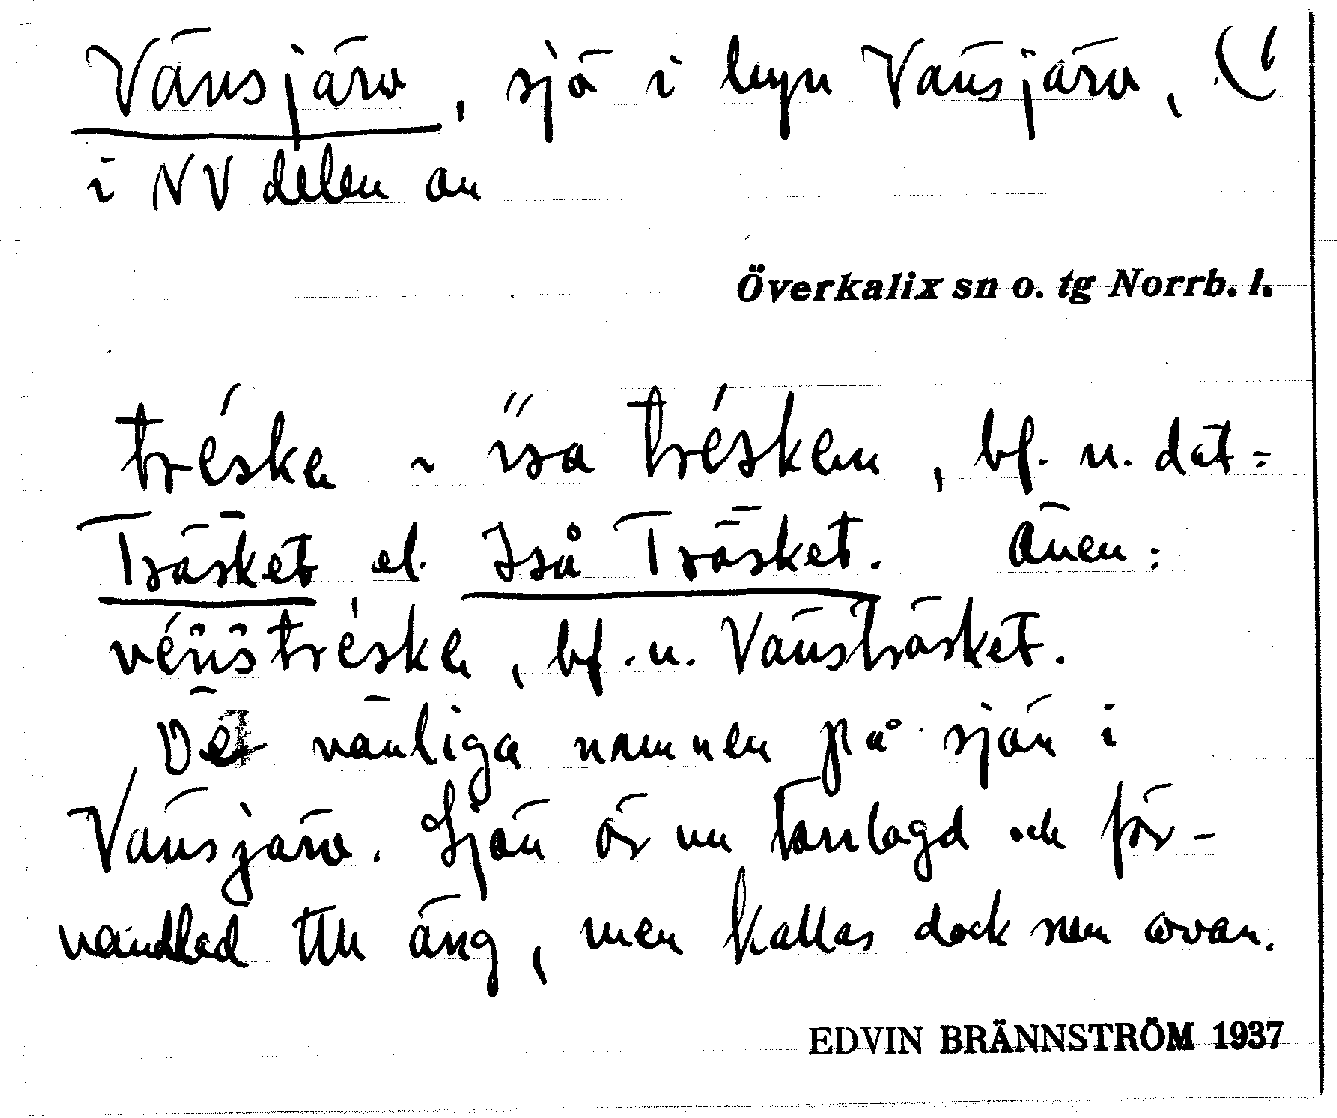 Vänsjärv, sjö i byn Vänsjärv, (1
i NV delen av
Överkalix sn o. tg Norrb. l.
tréske - isa trésken, bf. n. dat =
Träsket el. Iså Träsket. Även:
vénstréske, bf. n. Vänsträsket.
De vanliga namnen på sjön i
Vänsjärv. Sjön är nu torrlagd och för-
vandlad till äng, men kallas dock som ovan.
EDVIN BRÄNNSTRÖM 1937